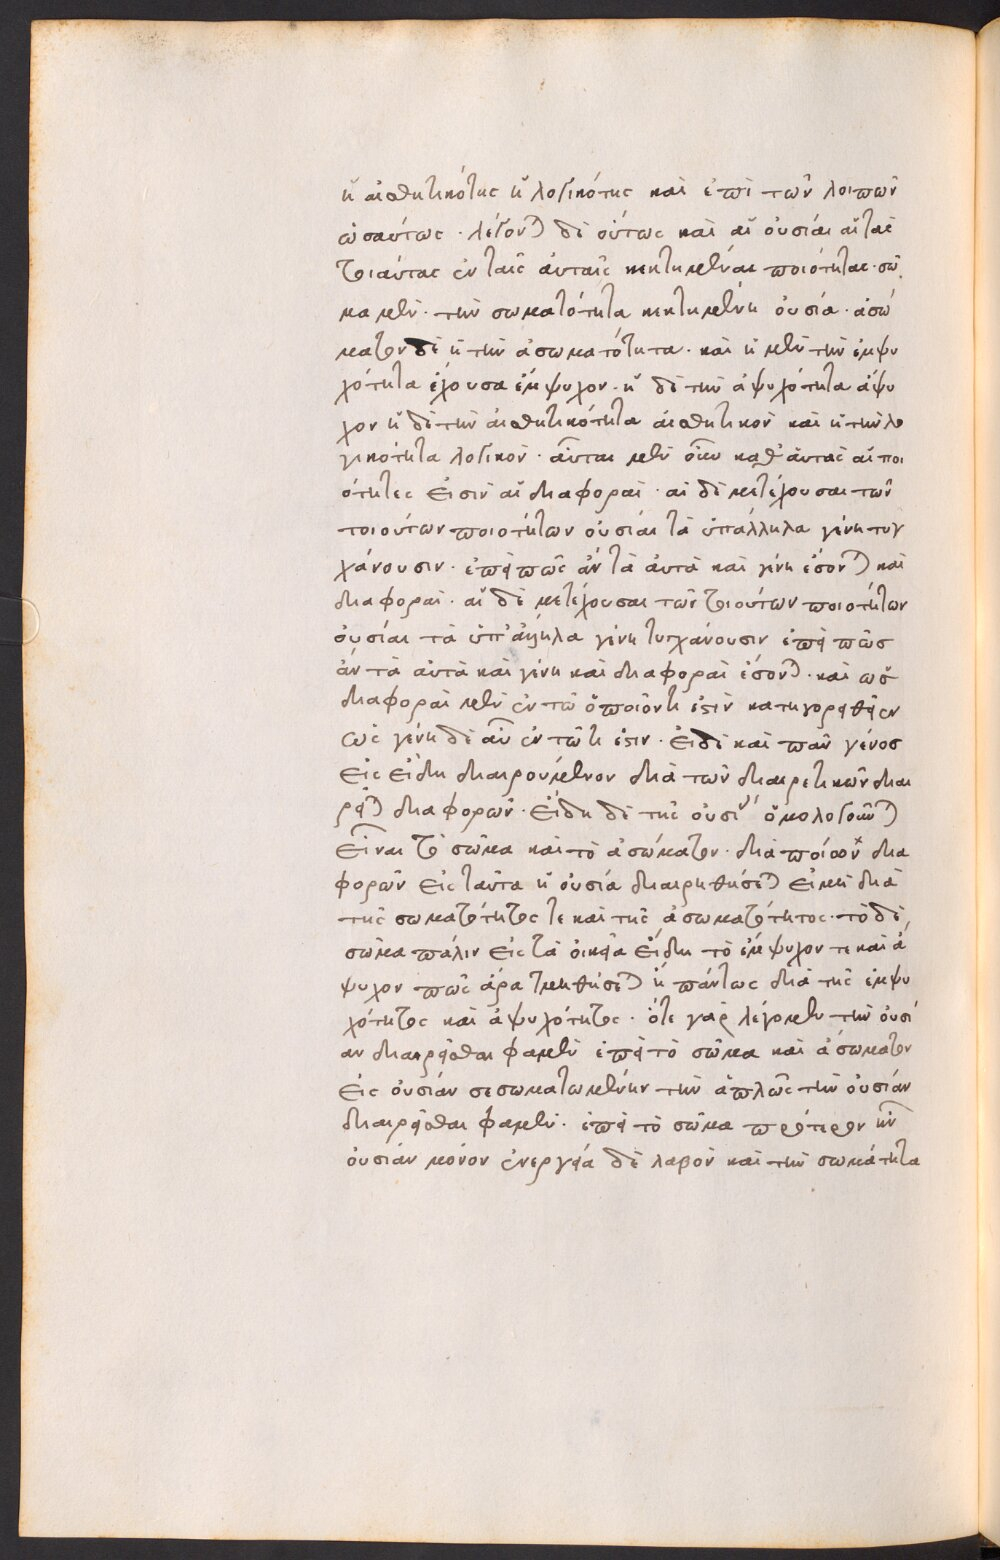 ἢ αἰσθητικότης ἢ λογικότης καὶ ἐπὶ τῶν λοιπῶν
ὡσαύτως · λέγονται δὲ οὕτως καὶ αἱ οὐσίαι αἱ τὰς
τοιαύτας ἐν ταῖς αὐταῖς κεκτημέναι ποιότητας · σῶ
μα μὲν · τὴν σωματότητα κεκτημένη οὐσία · ἀσώ
ματον δὲ ἡ τὴν ἀσωματότητα · καὶ ἡ μὲν τὴν ἐμψυ
χότητα ἔχουσα ἔμψυχον · ἡ δὲ τὴν ἀψυχότητα ἄψυ
χον ἡ δὲ τὴν αἰσθητικότητα αἰσθητικὸν καὶ ἡ τὴν λο
γικότητα λογικὸν · αὗται μὲν οὖν καθ' αὑτὰς αἱ ποι
ότητες εἰσὶν αἱ διαφοραὶ · αἱ δὲ μετέχουσαι τῶν
τοιούτων ποιοτήτων οὐσίαι τὰ ὑπάλληλα γένη τυγ
χάνουσιν · ἐπεὶ πῶς ἂν τὰ αὐτὰ καὶ γένη ἔσονται καὶ
διαφοραὶ · αἱ δὲ μετέχουσαι τῶν τοιούτων ποιοτήτων
οὐσίαι τὰ ὑπάλληλα γένη τυγχάνουσιν ἐπεὶ πῶς
ἂν τὰ αὐτὰ καὶ γένη καὶ διαφοραὶ ἔσονται · καὶ ὡς
διαφοραὶ μὲν ἐν τῷ ὁποῖόν τι ἐστὶν κατηγορηθεῖεν
ὡς γένη δὲ αὖ ἐν τῷ τί ἐστιν · εἰ δὲ καὶ πᾶν γένος
εἰς εἴδη διαιρούμενον διὰ τῶν διαιρετικῶν διαι
ρεῖται διαφορῶν · εἴδη δὲ τῆς οὐσίας ὁμολογοῦμεν
εἶναι τὸ σῶμα καὶ τὸ ἀσώματον · διὰ ποίων δια
φορῶν εἰς ταῦτα ἡ οὐσία διαιρηθήσεται εἰ μὴ διὰ
τῆς σωματότητός τε καὶ τῆς ἀσωματότητος · τὸ δὲ
σῶμα πάλιν εἰς τὰ οἰκεῖα εἴδη τὸ ἔμψυχον τε καὶ ἄ
ψυχον πῶς ἄρα τμηθήσεται ἢ πάντως διὰ τῆς ἐμψυ
χότητος καὶ ἀψυχότητος · ὅτε γὰρ λέγομεν τὴν οὐσί
αν διαιρεῖσθαι φαμὲν ἐπεὶ τὸ σῶμα καὶ ἀσώματον
εἰς οὐσίαν σεσωματωμένην τὴν ἁπλῶς τὴν οὐσίαν
διαιρεῖσθαι φαμὲν · ἐπεὶ τὸ σῶμα πρότερον ἦν
οὐσίαν μόνον ἐνεργείᾳ δὲ λαβὸν καὶ τὴν σωμάτητα